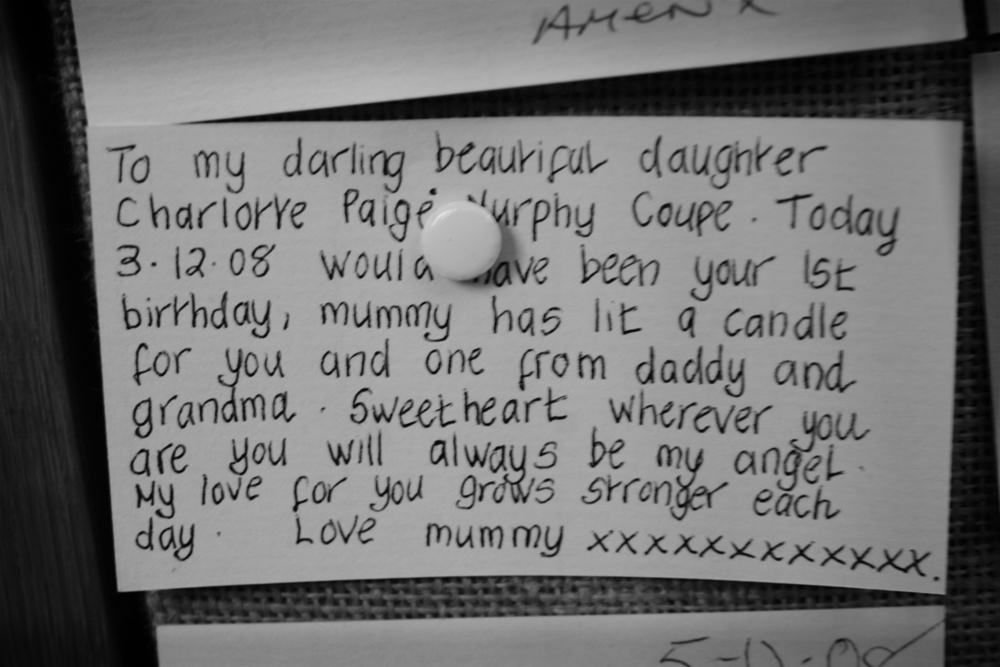 Amen x
To my darling beautiful daughter
Charlotte Paige Murphy Coupe. Today
3.12.08 would have been your 1st
birthday, mummy has lit a candle
for you and one from daddy and
grandma. Sweetheart wherever you
are you will always be my angel.
My love for you grows stronger each
day. Love mummy xxxxxxxxxxxxx.